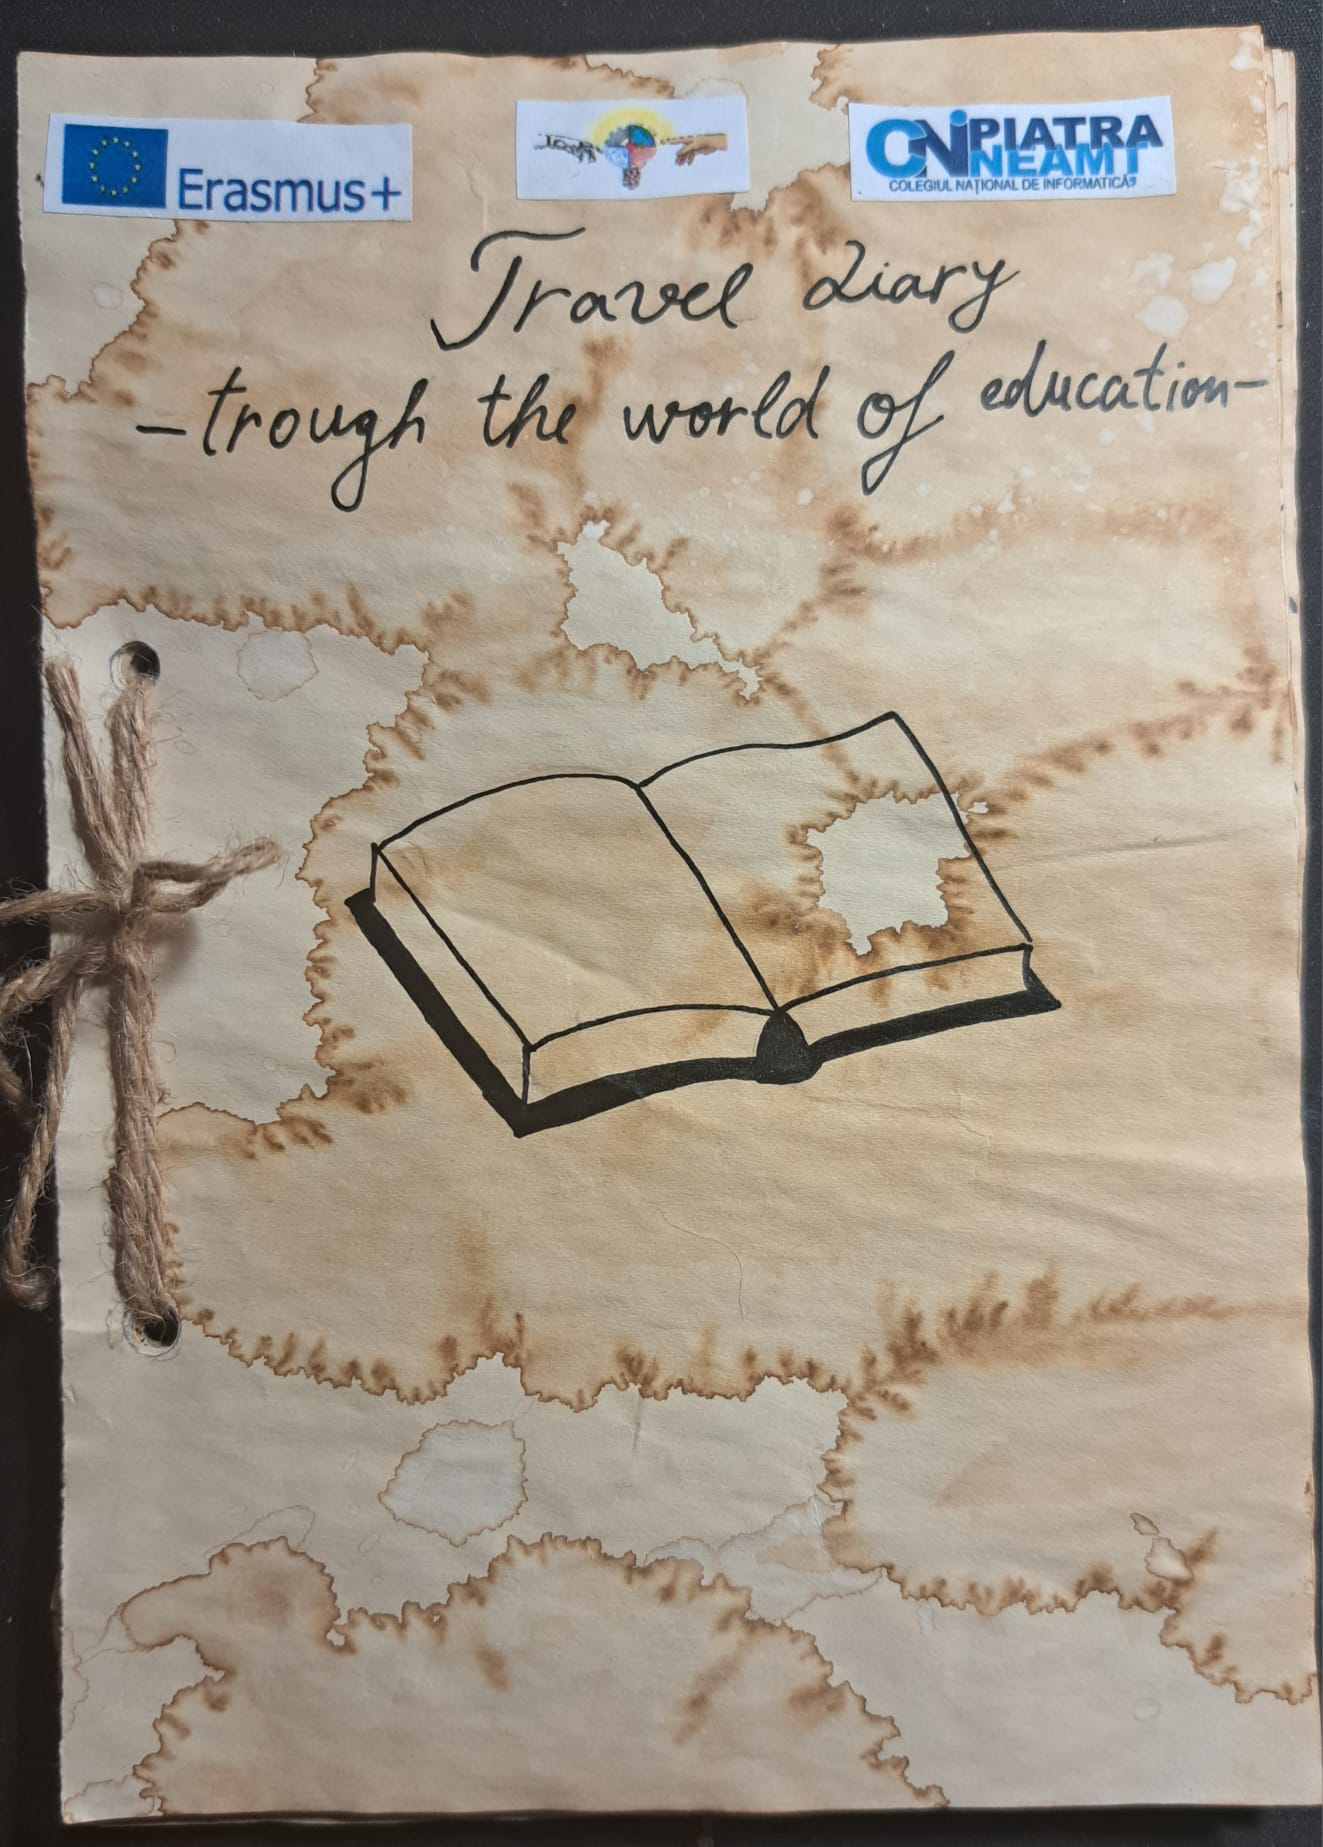 Erasmus+
CNI PIATRA
NEAMȚ
COLEGIUL NAȚIONAL DE INFORMATICĂ
Travel diary
-trough the world of education-